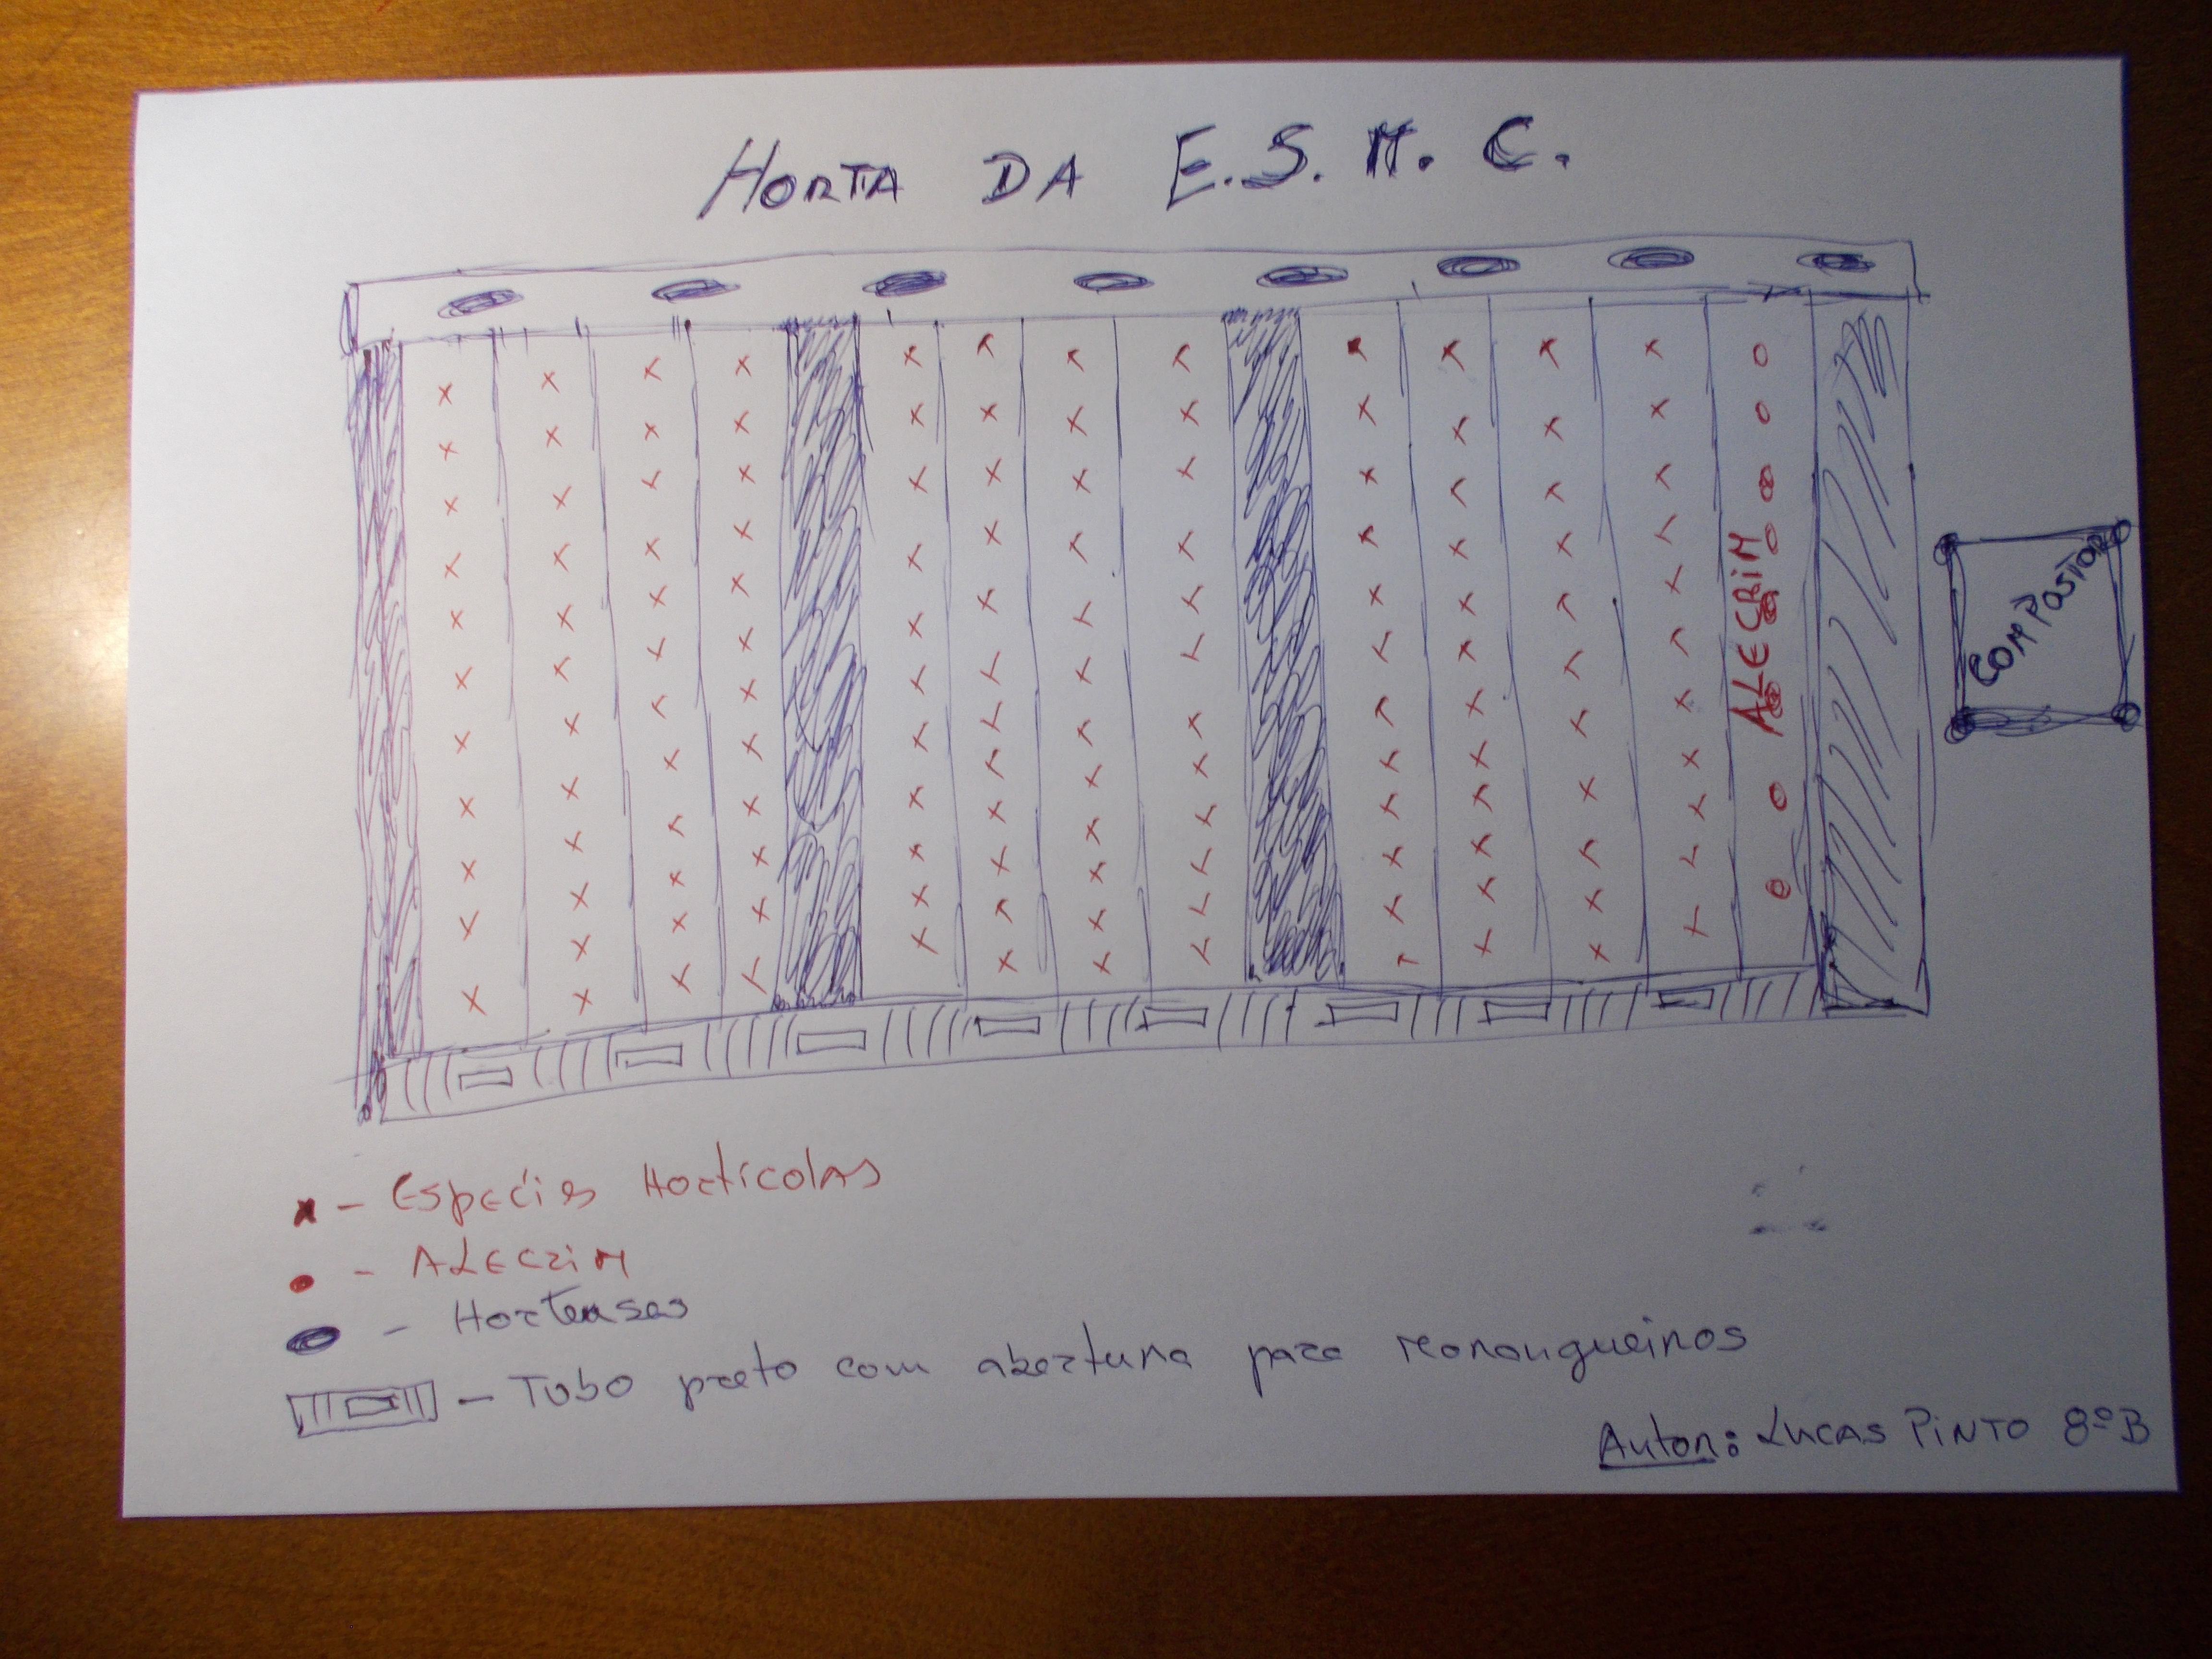 HORTA DA E.S.M.C.
ALECRIM
COMPOSTOR
x - Espécies Hortícolas
- ALECRIM
- Hortensas
- Tubo preto com abertura para morangueiros
Autor: LUCAS PINTO 8ºB